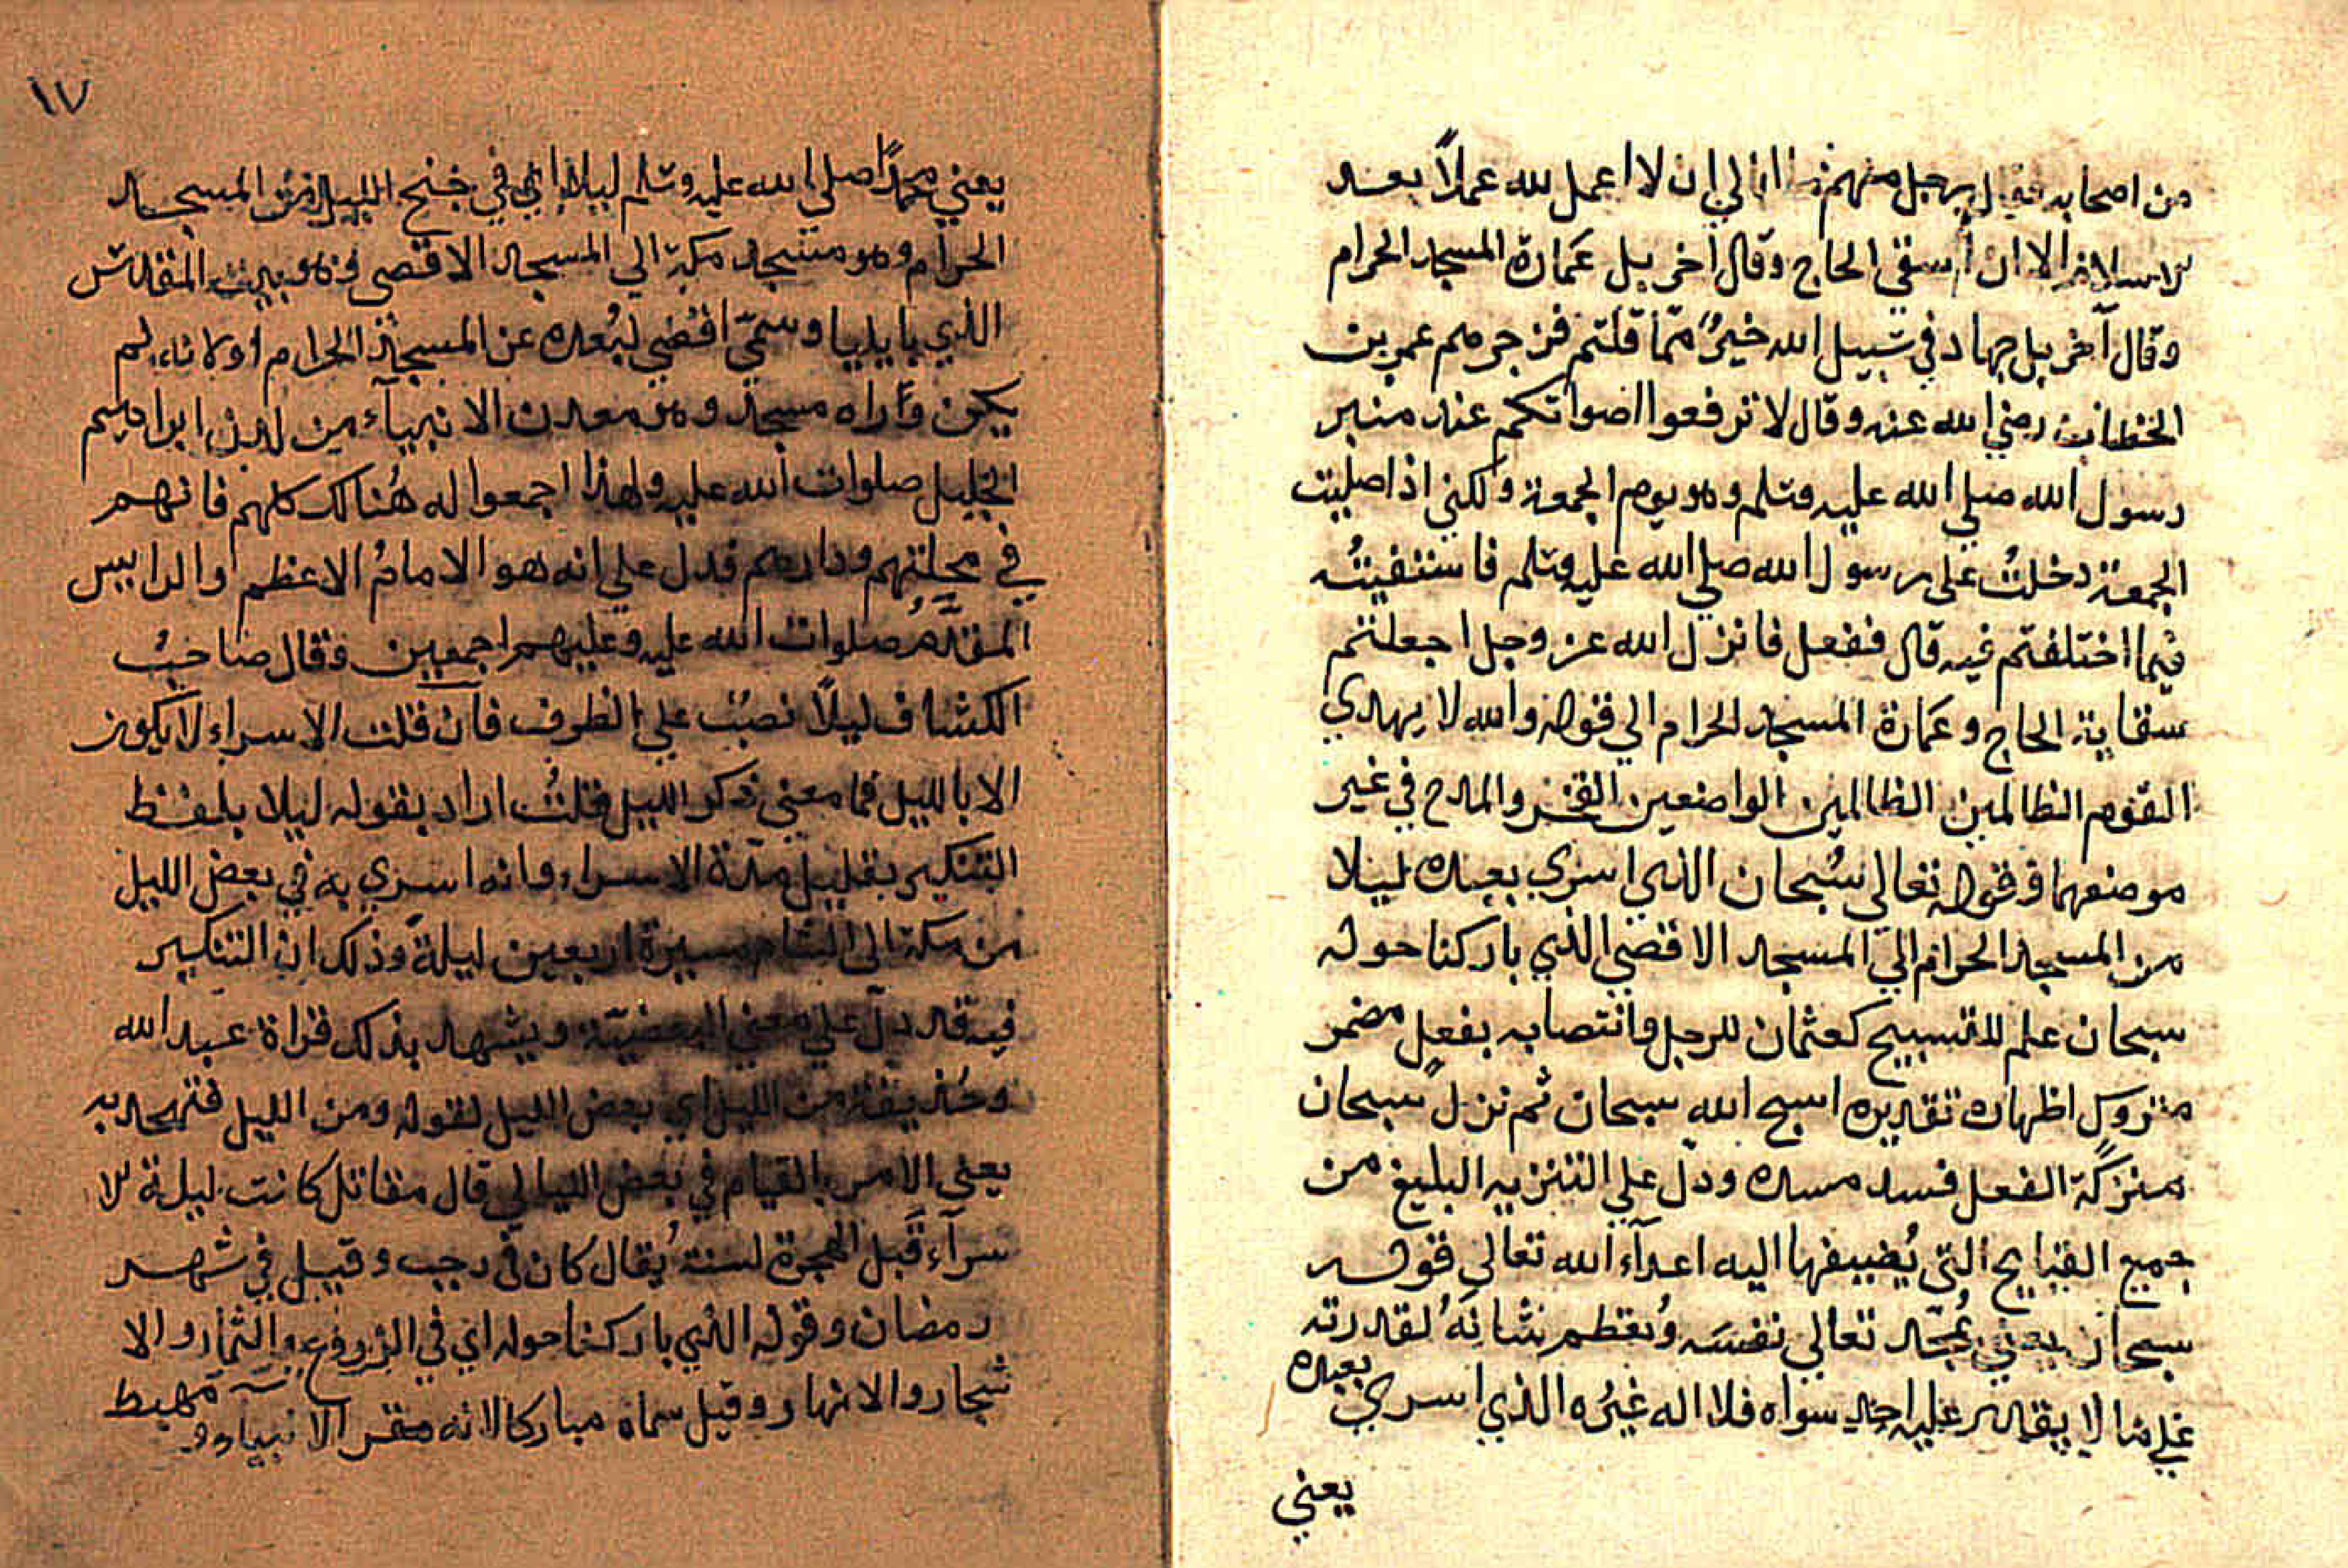 من اصحابه فقال رجل منهم ما ابالي ان لا اعمل لله عملاً بعد
الاسلام الا ان أسقي الحاج وقال اخر بل عمارة المسجد الحرام
وقال آخر بل جهاد في سبيل الله خيرٌ ممّا قلتم فزجرهم عمر بن
الخطاب رضي الله عنه وقال لا ترفعوا اصواتكم عند منبر
رسول الله صلي الله عليه وسلم وهو يوم الجمعة ولكني اذا صليت
الجمعة دخلتُ على رسول الله صلي الله عليه وسلم فاستفيتُه
فيما اختلفتم فيه قال ففعل فانزل الله عز وجل اجعلتم
سقاية الحاج وعمارة المسجد الحرام الي قوله والله لا يهدي
القوم الظالمين الظالمين الواضعين الفخر والمدح في غير
موضعهما وقوله تعالي سُبحان الذي اسري بعبده ليلا
من المسجد الحرام الي المسجد الاقصي الذي باركنا حوله
سبحان علم للتسبيح كعثمان للرجل وانتصابه بفعل مضمر
متروك اظهاره تقديره اسبح الله سبحان ثم نزل سبحان
منزلة الفعل فسد مسده ودلّ علي التنزيه البليغ من
جميع القبايح التي يُضيفها اليه اعدآء الله تعالي قوله
سبحان يعني يُمجّد تعالي نفسَه ويُعظم شانهُ لقدرته
علي ما لا يقدر عليه احد سواه فلا اله غيرُه الذي اسري بعبده
يعني
١٧
يعني محمّدًا صلي الله عليه وسلم ليلا اي في جنح الليل من المسجد
الحرام وهو مسجد مكة الي المسجد الاقصي وهو بيت المقدس
الذي بايليا وسمّي اقصي لبُعده عن المسجد الحرام اولانه لم
يكن ورآه مسجد وهو معدن الانبيآء من لدن ابراهيم
الخليل صلوات الله عليه ولهذا اجمعوا له هُنالك كلهم فانهم
في محلتهم ودارهم فدل علي انه هو الامامُ الاعظم والرايس
المقدّمُ صلوات الله عليه وعليهم اجمعين وقال صاحبُ
الكشاف ليلاً نصبٌ علي الظرف فان قلت الاسراء لا يكون
الا بالليل فما معني ذكر الليل قلتُ اراد بقوله ليلا بلفظ
التنكير بقليل مدّة الاسراء وانه اسري به في بعض الليل
من مكة الي الشام مسيرة اربعين ليلة وذلك ان التنكير
فيه قد دلّ علي معني البعضيّة ويشهد بذلك قراة عبد الله
وحُذيفة من الليل اي بعض الليل لقوله ومن الليل فتهجد به
يعني الامر بالقيام في بعض الليالي قال مقاتل كانت ليلة لا
سرآء قبل الهجرة لسنة يُقال كان في رجب وقيل في شهر
رمضان وقوله الذي باركنا حوله اي في الزروع والثمار والا
شجار والانهار وقيل سماه مباركا لانه مقر الانبياء ومهبط